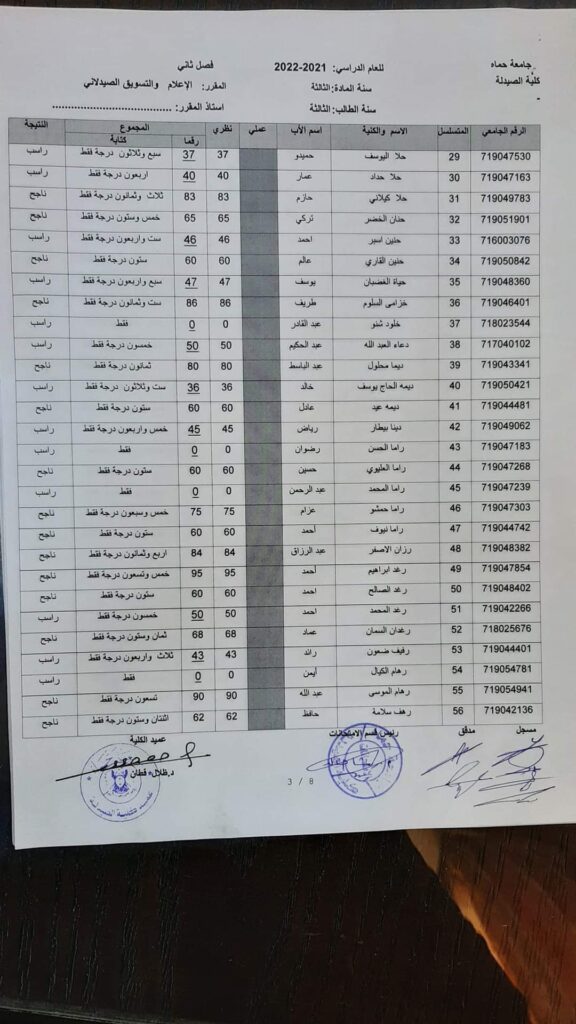 جامعة حماه
كلية الصيدلة
للعام الدراسي: 2021-2022 فصل ثاني
سنة المادة: الثالثة المقرر: الإعلام والتسويق الصيدلاني
سنة الطالب: الثالثة استاذ المقرر: ....................................
الرقم الجامعي المتسلسل الاسم والكنية اسم الأب عملي نظري المجموع النتيجة
رقما كتابة
719047530 29 حلا اليوسف حميدو 37 37 سبع وثلاثون درجة فقط راسب
719047163 30 حلا حداد عمار 40 40 اربعون درجة فقط راسب
719049783 31 حلا كيلاني حازم 83 83 ثلاث وثمانون درجة فقط ناجح
719051901 32 حنان الخضر تركي 65 65 خمس وستون درجة فقط ناجح
716003076 33 حنين اسبر احمد 46 46 ست واربعون درجة فقط راسب
719050842 34 حنين القاري عالم 60 60 ستون درجة فقط ناجح
719048360 35 حياة الغضبان يوسف 47 47 سبع واربعون درجة فقط راسب
719046401 36 خزامى السلوم طريف 86 86 ست وثمانون درجة فقط ناجح
718023544 37 خلود شنو عبد القادر 0 0 فقط راسب
717040102 38 دعاء العبد الله عبد الحكيم 50 50 خمسون درجة فقط راسب
719043341 39 ديما محلول عبد الباسط 80 80 ثمانون درجة فقط ناجح
719050421 40 ديمه الحاج يوسف خالد 36 36 ست وثلاثون درجة فقط راسب
719044481 41 ديمه عيد عادل 60 60 ستون درجة فقط ناجح
719049062 42 دينا بيطار رياض 45 45 خمس واربعون درجة فقط راسب
719047183 43 راما الحسن رضوان 0 0 فقط راسب
719047268 44 راما العليوي حسين 60 60 ستون درجة فقط ناجح
719047239 45 راما المحمد عبد الرحمن 0 0 فقط راسب
719047303 46 راما حمشو عزام 75 75 خمس وسبعون درجة فقط ناجح
719044742 47 راما نيوف أحمد 60 60 ستون درجة فقط ناجح
719048382 48 رزان الاصفر عبد الرزاق 84 84 اربع وثمانون درجة فقط ناجح
719047854 49 رغد ابراهيم أحمد 95 95 خمس وتسعون درجة فقط ناجح
719048402 50 رغد الصالح احمد 60 60 ستون درجة فقط ناجح
719042266 51 رغد المحمد احمد 50 50 خمسون درجة فقط راسب
718025676 52 رغدان السمان عماد 68 68 ثمان وستون درجة فقط ناجح
719044401 53 رفيف ضعون رائد 43 43 ثلاث واربعون درجة فقط راسب
719054781 54 رهام الكيال أيمن 0 0 فقط راسب
719054941 55 رهام الموسي عبد الله 90 90 تسعون درجة فقط ناجح
719042136 56 رهف سلامة حافظ 62 62 اثنتان وستون درجة فقط ناجح
مسجل مدقق رئيس قسم الامتحانات عميد الكلية
د.طلال قطان
3 / 8